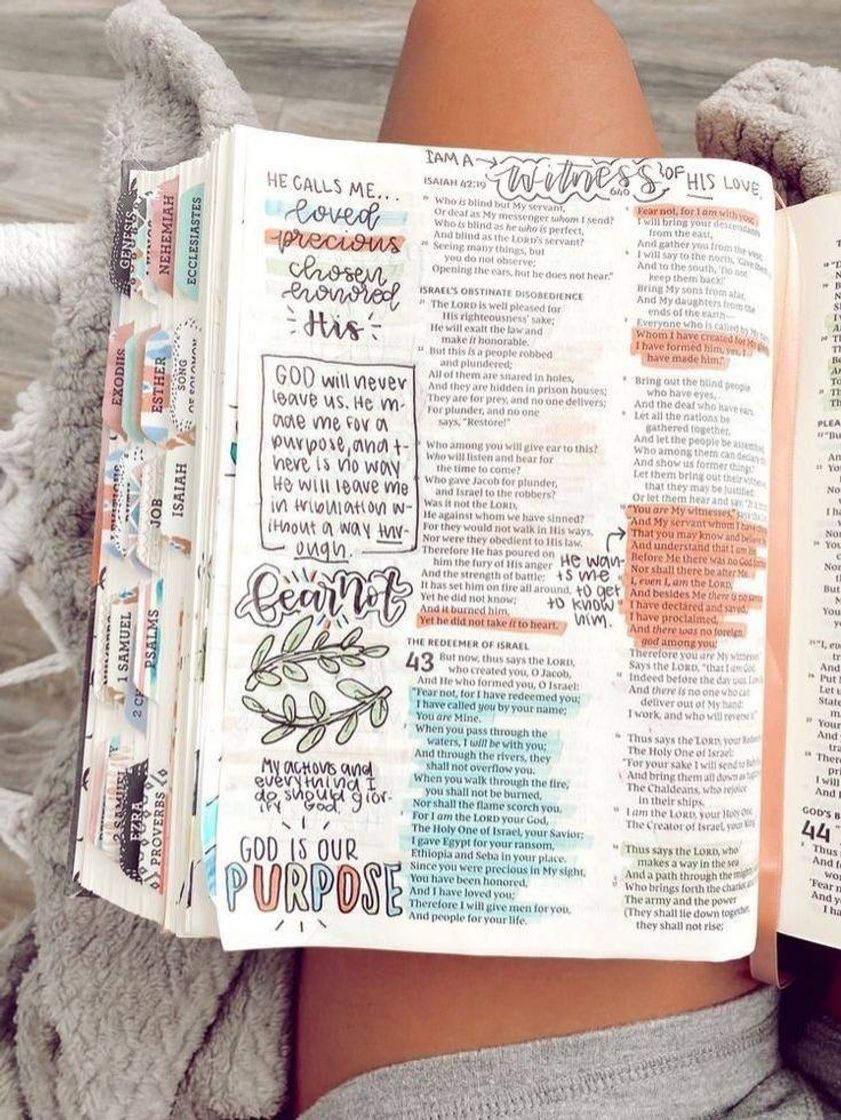 GENESIS
NEHEMIAH
ECCLESIASTES
EXODUS
ESTHER
SONG
OF SOLOMON
JOB
ISAIAH
1 SAMUEL
PSALMS
2 SAMUEL
EZRA
PROVERBS
HE CALLS ME...
loved
precious
chosen
honored
His
GOD will never
leave us. He m-
ade me for a
purpose, and t-
here is no way
He will leave me
in tribulation w-
ithout a way thr-
ough.
fear not
My actions and
everything I
do should glor-
ify God.
GOD IS OUR
PURPOSE
I AM A → witness OF HIS LOVE.
ISAIAH 42:19
640
19 Who is blind but My servant,
Or deaf as My messenger whom I send?
Who is blind as he who is perfect,
And blind as the LORD's servant?
20 Seeing many things, but
you do not observe;
Opening the ears, but he does not hear."
ISRAEL'S OBSTINATE DISOBEDIENCE
21 The LORD is well pleased for
His righteousness' sake;
He will exalt the law and
make it honorable.
22 But this is a people robbed
and plundered;
All of them are snared in holes,
And they are hidden in prison houses;
They are for prey, and no one delivers;
For plunder, and no one
says, "Restore!"
Who among you will give ear to this?
Who will listen and hear for
the time to come?
Who gave Jacob for plunder,
and Israel to the robbers?
Was it not the LORD,
He against whom we have sinned?
For they would not walk in His ways,
Nor were they obedient to His law.
Therefore He has poured on
him the fury of His anger
And the strength of battle;
It has set him on fire all around,
Yet he did not know;
And it burned him,
Yet he did not take it to heart.
THE REDEEMER OF ISRAEL
43 But now, thus says the LORD,
who created you, O Jacob,
And He who formed you, O Israel:
"Fear not, for I have redeemed you;
I have called you by your name;
You are Mine.
When you pass through the
waters, I will be with you;
And through the rivers, they
shall not overflow you.
When you walk through the fire,
you shall not be burned,
Nor shall the flame scorch you.
For I am the LORD your God,
The Holy One of Israel, your Savior;
I gave Egypt for your ransom,
Ethiopia and Seba in your place.
Since you were precious in My sight,
You have been honored,
And I have loved you;
Therefore I will give men for you,
And people for your life.
He wan-
ts me
to get
to know
him.
Fear not, for I am with you;
I will bring your descendants
from the east,
And gather you from the west;
I will say to the north, 'Give them
And to the south, 'Do not
keep them back!'
Bring My sons from afar,
And My daughters from the
ends of the earth—
Everyone who is called by My
Whom I have created for My
I have formed him, yes, I
have made him."
Bring out the blind people
who have eyes,
And the deaf who have ears.
Let all the nations be
gathered together,
And let the people be assembled.
Who among them can declare
And show us former things?
Let them bring out their
that they may be justified;
Or let them hear and say, "It is
"You are My witnesses," says the
"And My servant whom I have
That you may know and believe
And understand that I am He.
Before Me there was no God
Nor shall there be after Me.
I, even I, am the LORD,
And besides Me there is no
I have declared and saved,
I have proclaimed,
And there was no foreign
god among you;
Therefore you are My witnesses,"
Says the LORD, "that I am God.
Indeed before the day was, I
And there is no one who can
deliver out of My hand;
I work, and who will reverse
Thus says the LORD, your Redeemer,
The Holy One of Israel:
"For your sake I will send to
And bring them all down as
The Chaldeans, who rejoice
in their ships.
I am the LORD, your Holy One,
The Creator of Israel, your
Thus says the LORD, who
makes a way in the sea
And a path through the mighty
Who brings forth the chariot
The army and the power
(They shall lie down together,
they shall not rise;
44